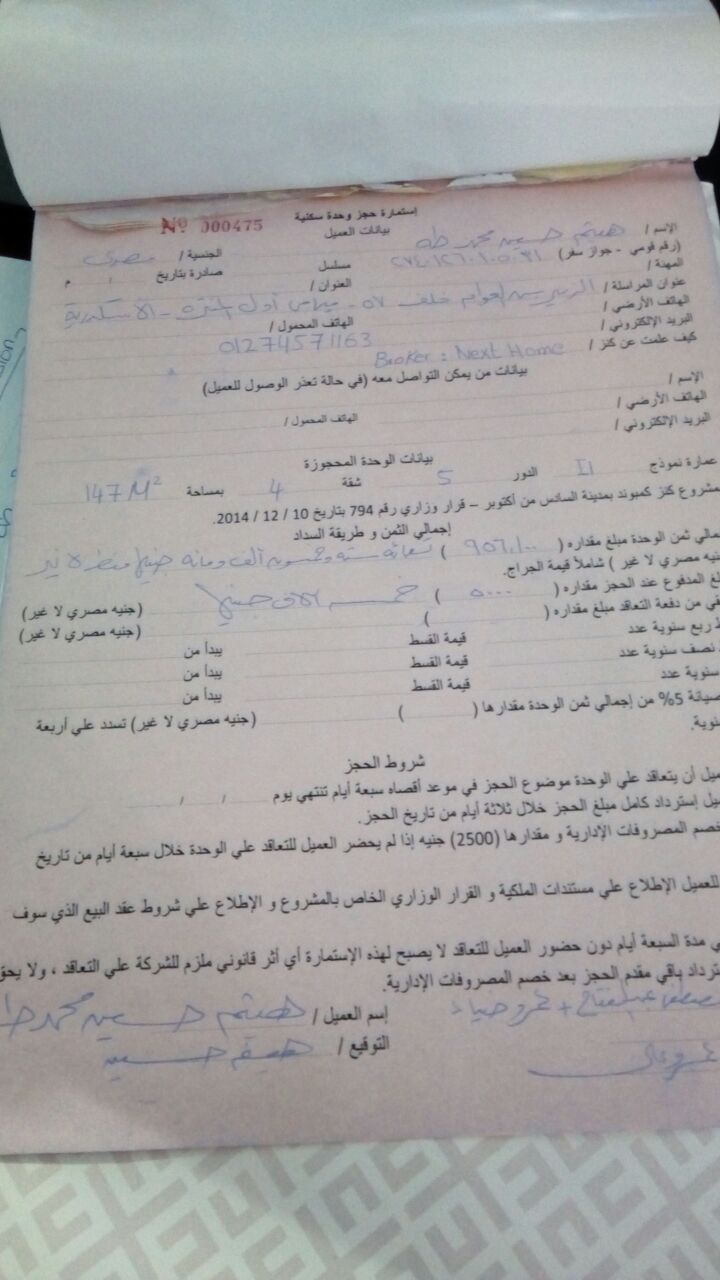 إستمارة حجز وحدة سكنية
Nº 000475
بيانات العميل
الإسم / هيثم حسين محمد طه
(رقم قومي - جواز سفر) الجنسية / مصرى
المهنة / مسلسل صادرة بتاريخ / / م
العنوان /
عنوان المراسلة / خلف ٥٧ - أول المنتزه - الاسكندرية
الهاتف الأرضي / الهاتف المحمول /
البريد الإلكتروني / 01274571163
كيف علمت عن كنز / Broker : Next Home
بيانات من يمكن التواصل معه (في حالة تعذر الوصول للعميل)
الإسم /
الهاتف الأرضي / الهاتف المحمول /
البريد الإلكتروني /
بيانات الوحدة المحجوزة
عمارة نموذج II الدور 5 شقة 4 بمساحة 147 M²
مشروع كنز كمبوند بمدينة السادس من أكتوبر – قرار وزاري رقم 794 بتاريخ 10 / 12 / 2014.
إجمالي الثمن و طريقة السداد
مالي ثمن الوحدة مبلغ مقداره ( ٩٥٦١٠٠ ) تسعمائة ستة وخمسون ألف ومائة جنيها مصريا لا غير
نيه مصري لا غير ) شاملاً قيمة الجراج.
لغ المدفوع عند الحجز مقداره ( ٥٠٠٠ ) خمسة الاف جنيها (جنيه مصري لا غير)
في من دفعة التعاقد مبلغ مقداره ( ) (جنيه مصري لا غير)
ط ربع سنوية عدد قيمة القسط يبدأ من
نصف سنوية عدد قيمة القسط يبدأ من
سنوية عدد قيمة القسط يبدأ من
صيانة 5% من إجمالي ثمن الوحدة مقدارها ( ) (جنيه مصري لا غير) تسدد علي أربعة
نوية.
شروط الحجز
ميل أن يتعاقد علي الوحدة موضوع الحجز في موعد أقصاه سبعة أيام تنتهي يوم / /
ميل إسترداد كامل مبلغ الحجز خلال ثلاثة أيام من تاريخ الحجز.
خصم المصروفات الإدارية و مقدارها (2500) جنيه إذا لم يحضر العميل للتعاقد علي الوحدة خلال سبعة أيام من تاريخ
للعميل الإطلاع علي مستندات الملكية و القرار الوزاري الخاص بالمشروع و الإطلاع علي شروط عقد البيع الذي سوف
ي مدة السبعة أيام دون حضور العميل للتعاقد لا يصبح لهذه الإستمارة أي أثر قانوني ملزم للشركة علي التعاقد ، ولا يحق
ترداد باقي مقدم الحجز بعد خصم المصروفات الإدارية.
عبدالفتاح + عمرو ضياء إسم العميل / هيثم حسين محمد طه
التوقيع / هيثم حسين